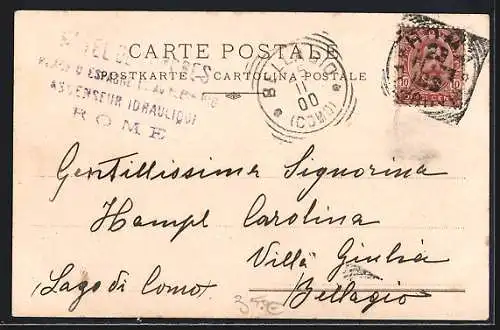 CARTE POSTALE
POSTKARTE CARTOLINA POSTALE
HOTEL DE
ASCENSEUR IDRAULIQUE
ROME
BELLAGIO
11
00
(COMO)
ROMA
10 10
Gentilissima Signorina
Hampl Carolina
Villa Giulia
Lago di Como. Bellagio
35.-€